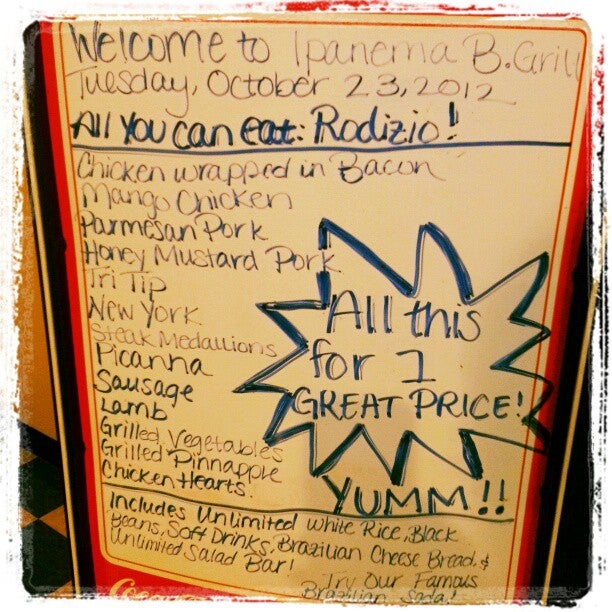 Welcome to Ipanema B. Grill
Tuesday, October 23, 2012
All You can eat: Rodizio!
Chicken wrapped in Bacon
Mango Chicken
Parmesan Pork
Honey Mustard Pork
Tri Tip
New York
Steak Medallions
Picanha
Sausage
Lamb
Grilled Vegetables
Grilled Pinnapple
Chicken Hearts.
All this
for 1
GREAT PRICE!
YUMM!!
Includes Unlimited White Rice, Black
Beans, Soft Drinks, Brazilian Cheese Bread, &
Unlimited Salad Bar!
Try Our Famous
Brazilian Soda!